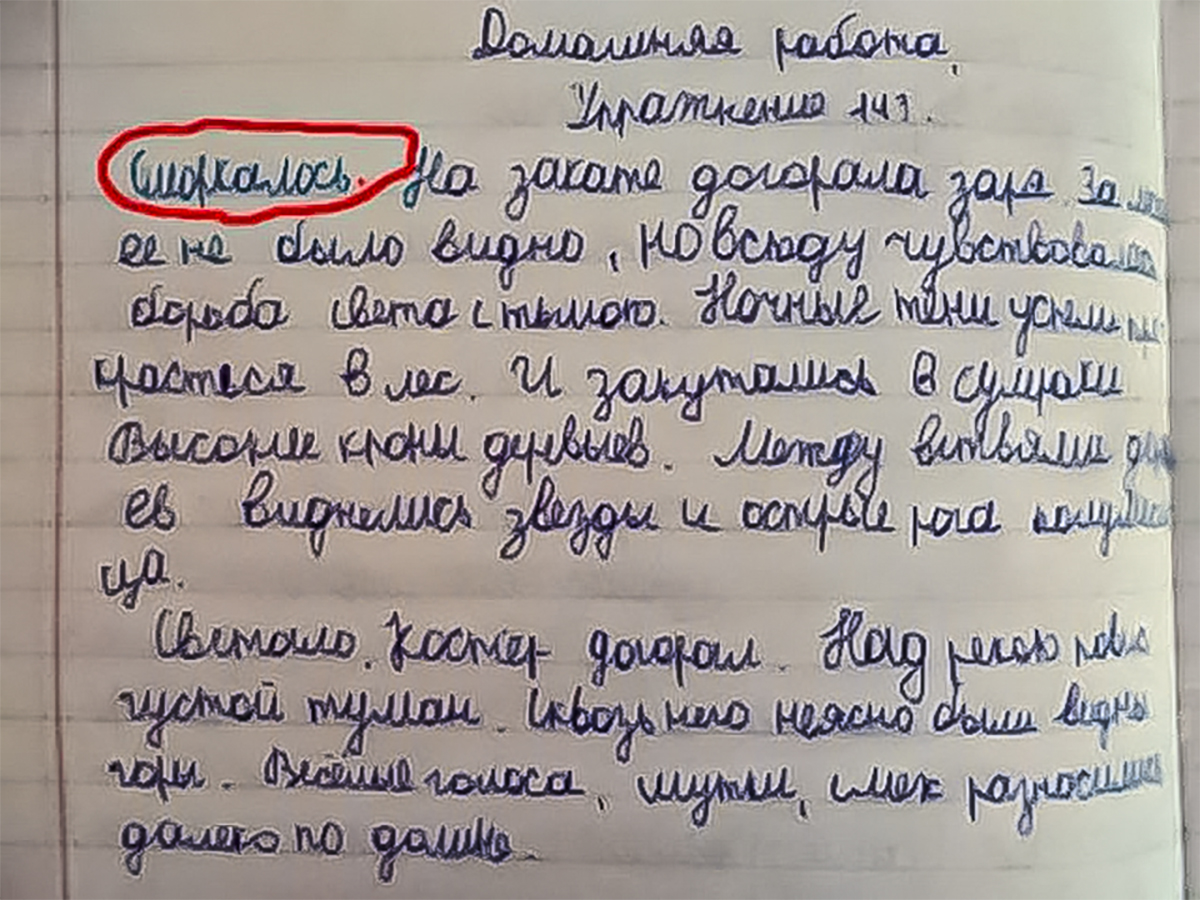 Домашняя работа.
Упражнение 143.
Сморкалось. На закате догорала заря. За
ее не было видно, но всюду чувствовалась
борьба света с тьмою. Ночные тени успели
красться в лес. И закутались в сумраки
Высокие кроны деревьев. Между ветвями
ев виднелись звезды и острые рога полумеся
ца.
Светало. Костер догорал. Над рекою
густой туман. Сквозь него неясно были видны
горы. Весёлые голоса, шутки, смех разносились
далеко по долине.